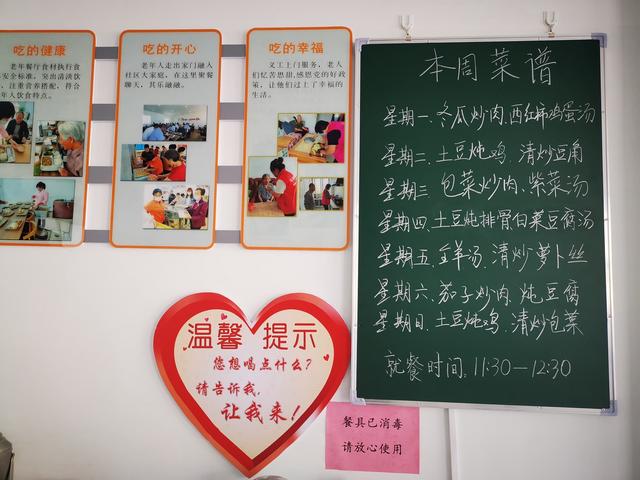 吃的健康
老年餐厅食材执行食
安全标准，突出清淡饮
，注重营养搭配，符合
年人饮食特点。
吃的开心
老年人走出家门融入
社区大家庭，在这里聚餐
聊天，其乐融融。
吃的幸福
义工上门服务，老人
们忆苦思甜，感恩党的好政
策，让他们过上了幸福的
生活。
本周菜谱
星期一、冬瓜炒肉、西红柿鸡蛋汤
星期二、土豆炖鸡、清炒豆角
星期三 包菜炒肉、紫菜汤
星期四、土豆炖排骨白菜豆腐汤
星期五、全羊汤、清炒萝卜丝
星期六、茄子炒肉、炖豆腐
星期日、土豆炖鸡、清炒包菜
就餐时间：11:30—12:30
温馨 提示
您想喝点什么？
请告诉我，
让我来！
餐具已消毒
请放心使用